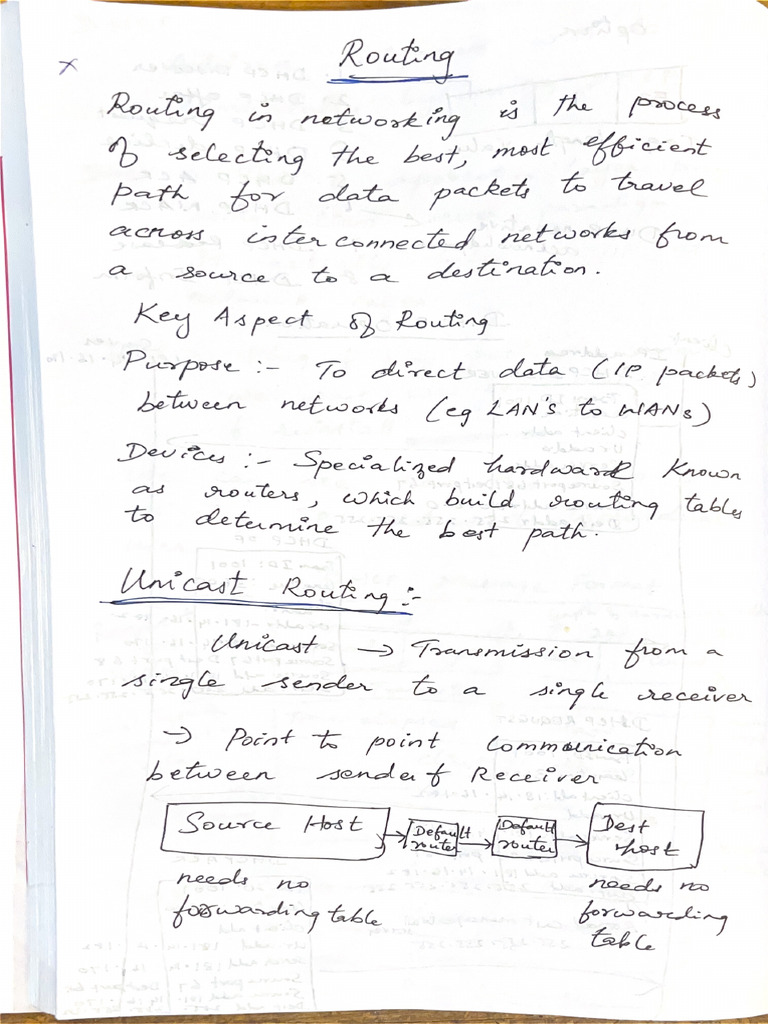 Routing
x
Routing in networking is the process
of selecting the best, most efficient
path for data packets to travel
across inter connected networks from
a source to a destination.
Key Aspect of Routing
Purpose :- To direct data (IP packets)
between networks (eg LAN's to WANs)
Devices :- Specialized hardware Known
as routers, which build routing tables
to determine the best path.
Unicast Routing :-
Unicast → Transmission from a
single sender to a single receiver
→ Point to point Communication
between sender & Receiver
Source Host → Default router → Default router → Dest Host
needs no
forwarding table
needs no
forwarding
table